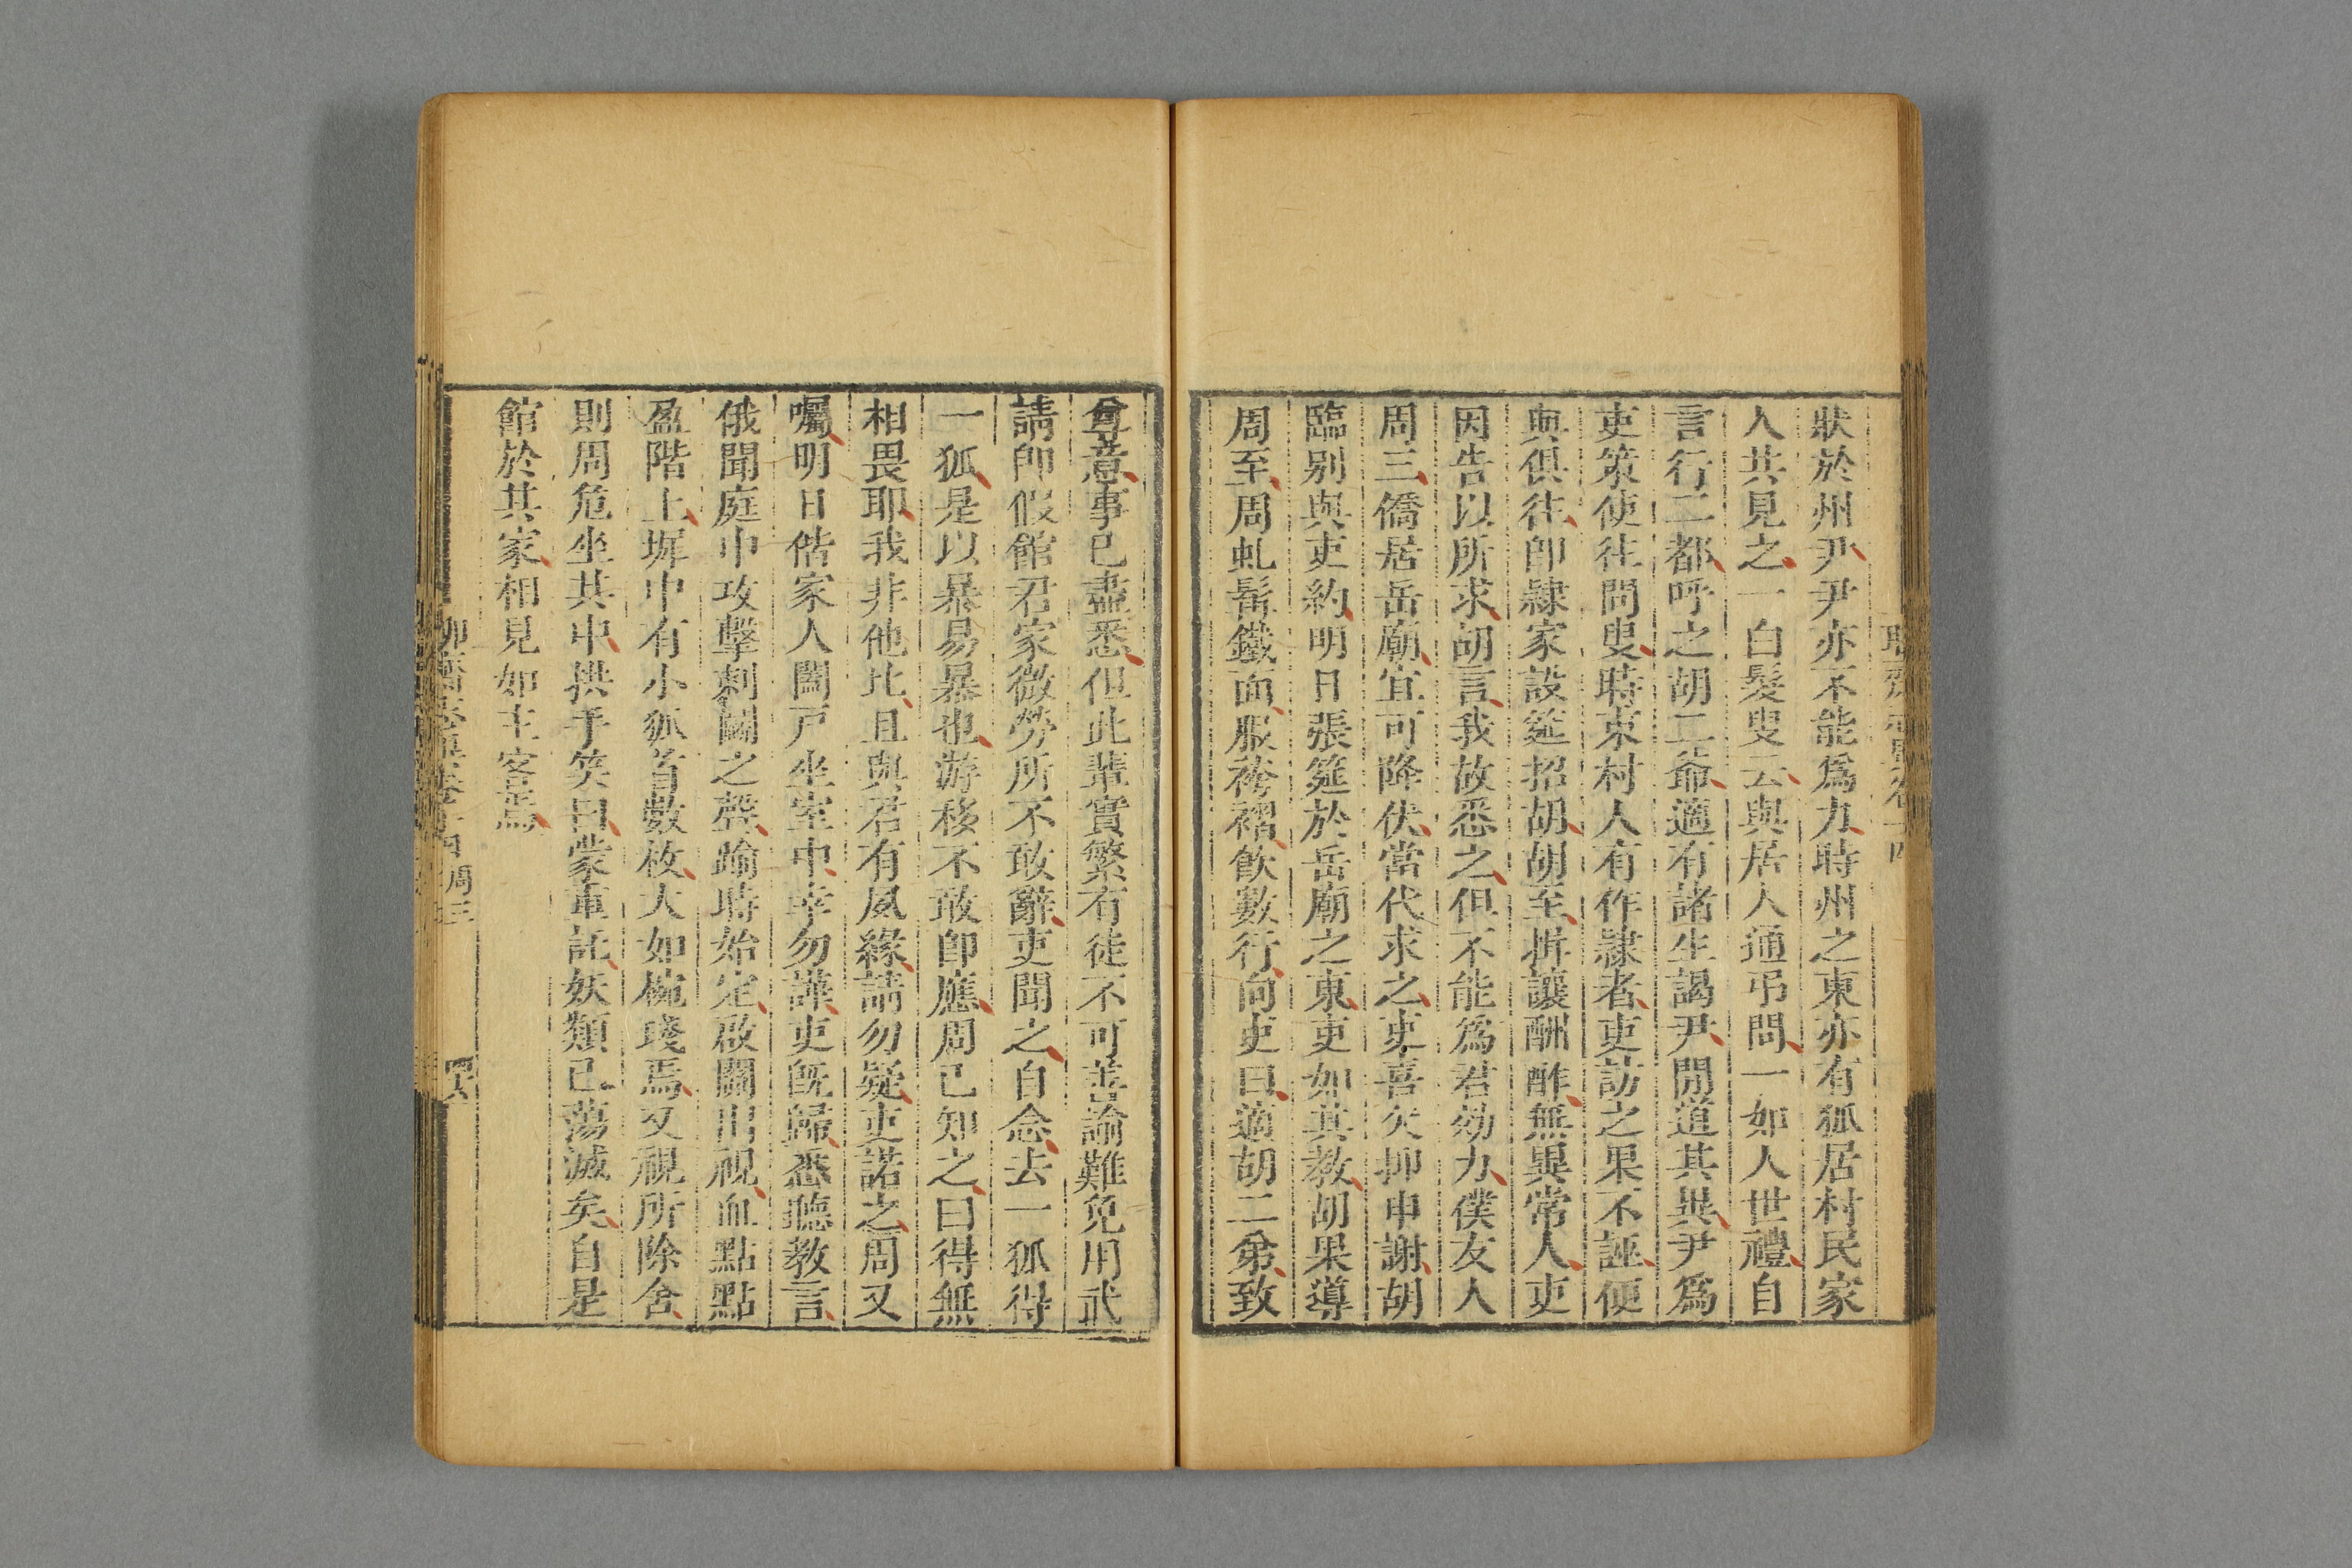 狀於州尹尹亦不能爲力時州之東亦有狐居村民家
人共見之一白髮叟云與居人通弔問一如人世禮自
言行二都呼之胡二爺適有諸生謁尹閒道其異尹爲
吏策使往問叟時東村人有作隸者吏訪之果不誣便
與俱往卽隸家設筵招胡胡至揖讓酬酢無異常人吏
因告以所求胡言我故悉之但不能爲君效力僕友人
周三僑居岳廟宜可降伏當代求之吏喜欠抑申謝胡
臨别與吏約明日張筵於岳廟之東吏如其教胡果導
周至周虬髯鐵面服袴褶飲數行向吏曰適胡二弟致
尊意事已盡悉但此輩實繁有徒不可善諭難免用武
請卽假館君家微勞所不敢辭吏聞之自念去一狐得
一狐是以暴易暴也游移不敢卽應周已知之曰得無
相畏耶我非他比且與君有夙緣請勿疑吏諾之周又
囑明日偕家人闔戶坐室中幸勿譁吏旣歸悉聽教言
俄聞庭中攻擊刺鬭之聲踰時始定啟關出視血點點
盈階上墀中有小狐首數枚大如椀琖焉又視所除舍
則周危坐其中拱手笑曰蒙重託妖類已蕩滅矣自是
館於其家相見如主客焉
周三